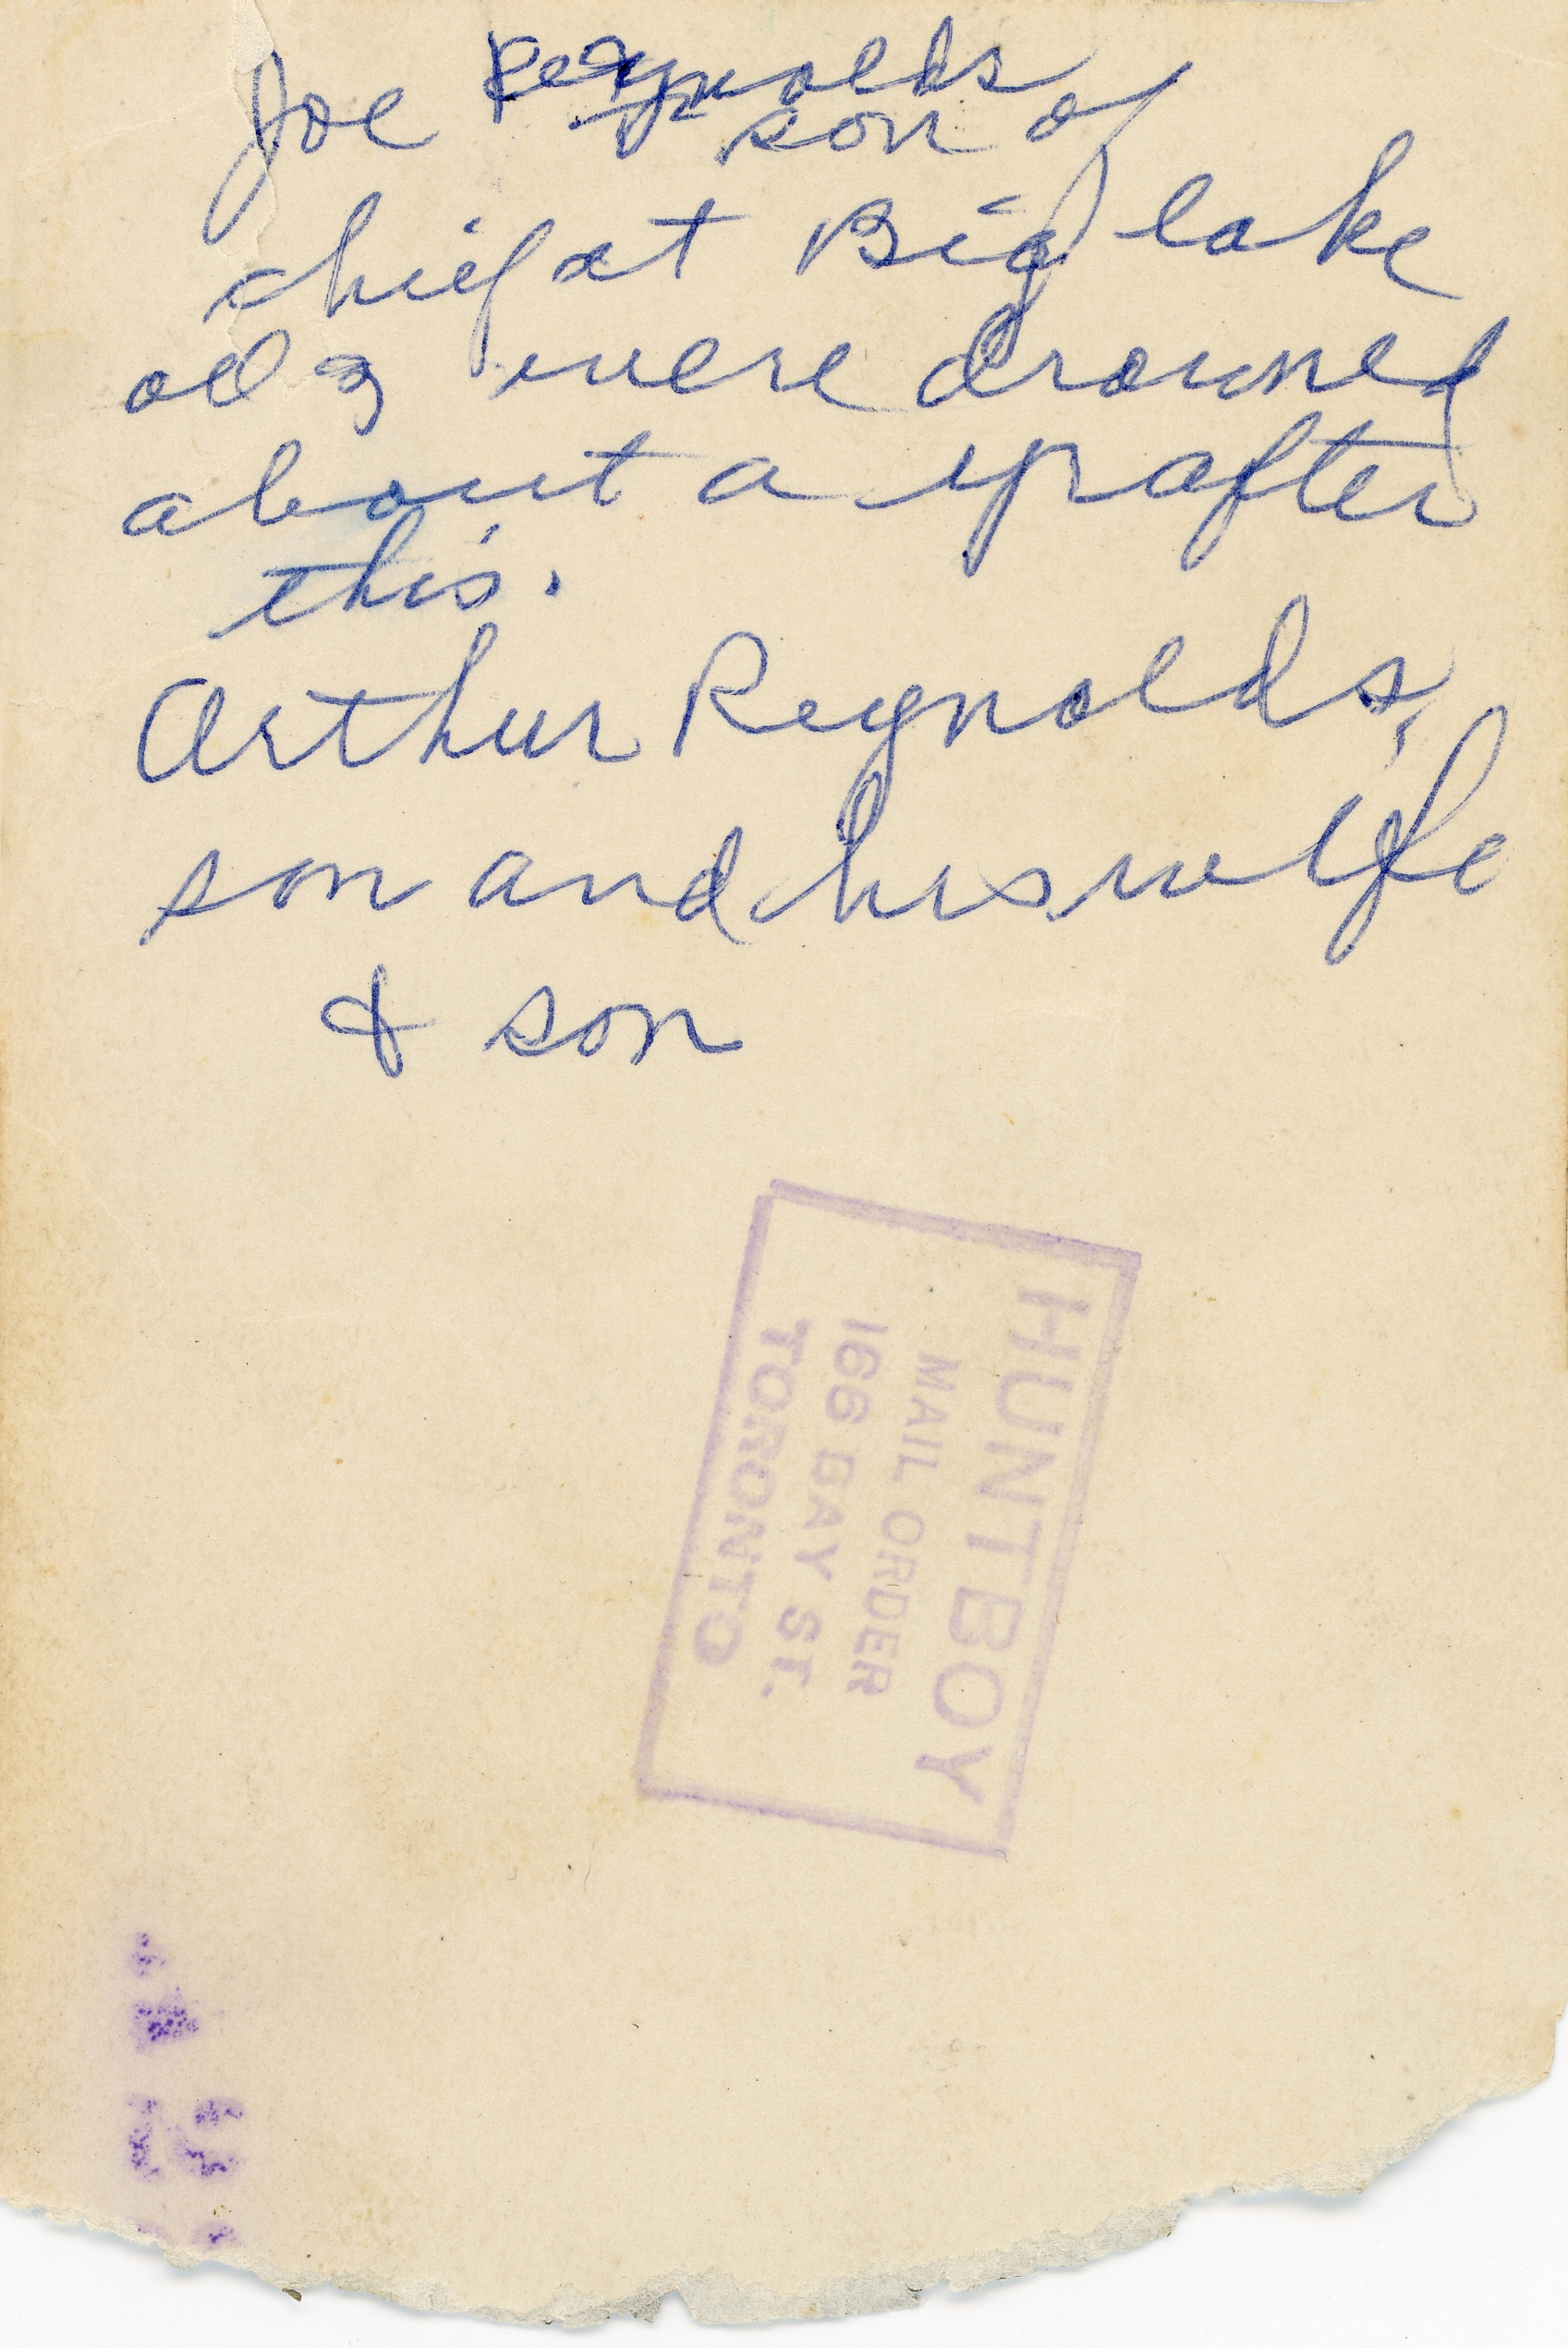 Joe Reynolds
son of
chief at Big lake
all 3 were drowned
about a yr after
this.
Arthur Reynolds,
son and his wife
& son
HUNTBOY
MAIL ORDER
166 BAY ST.
TORONTO